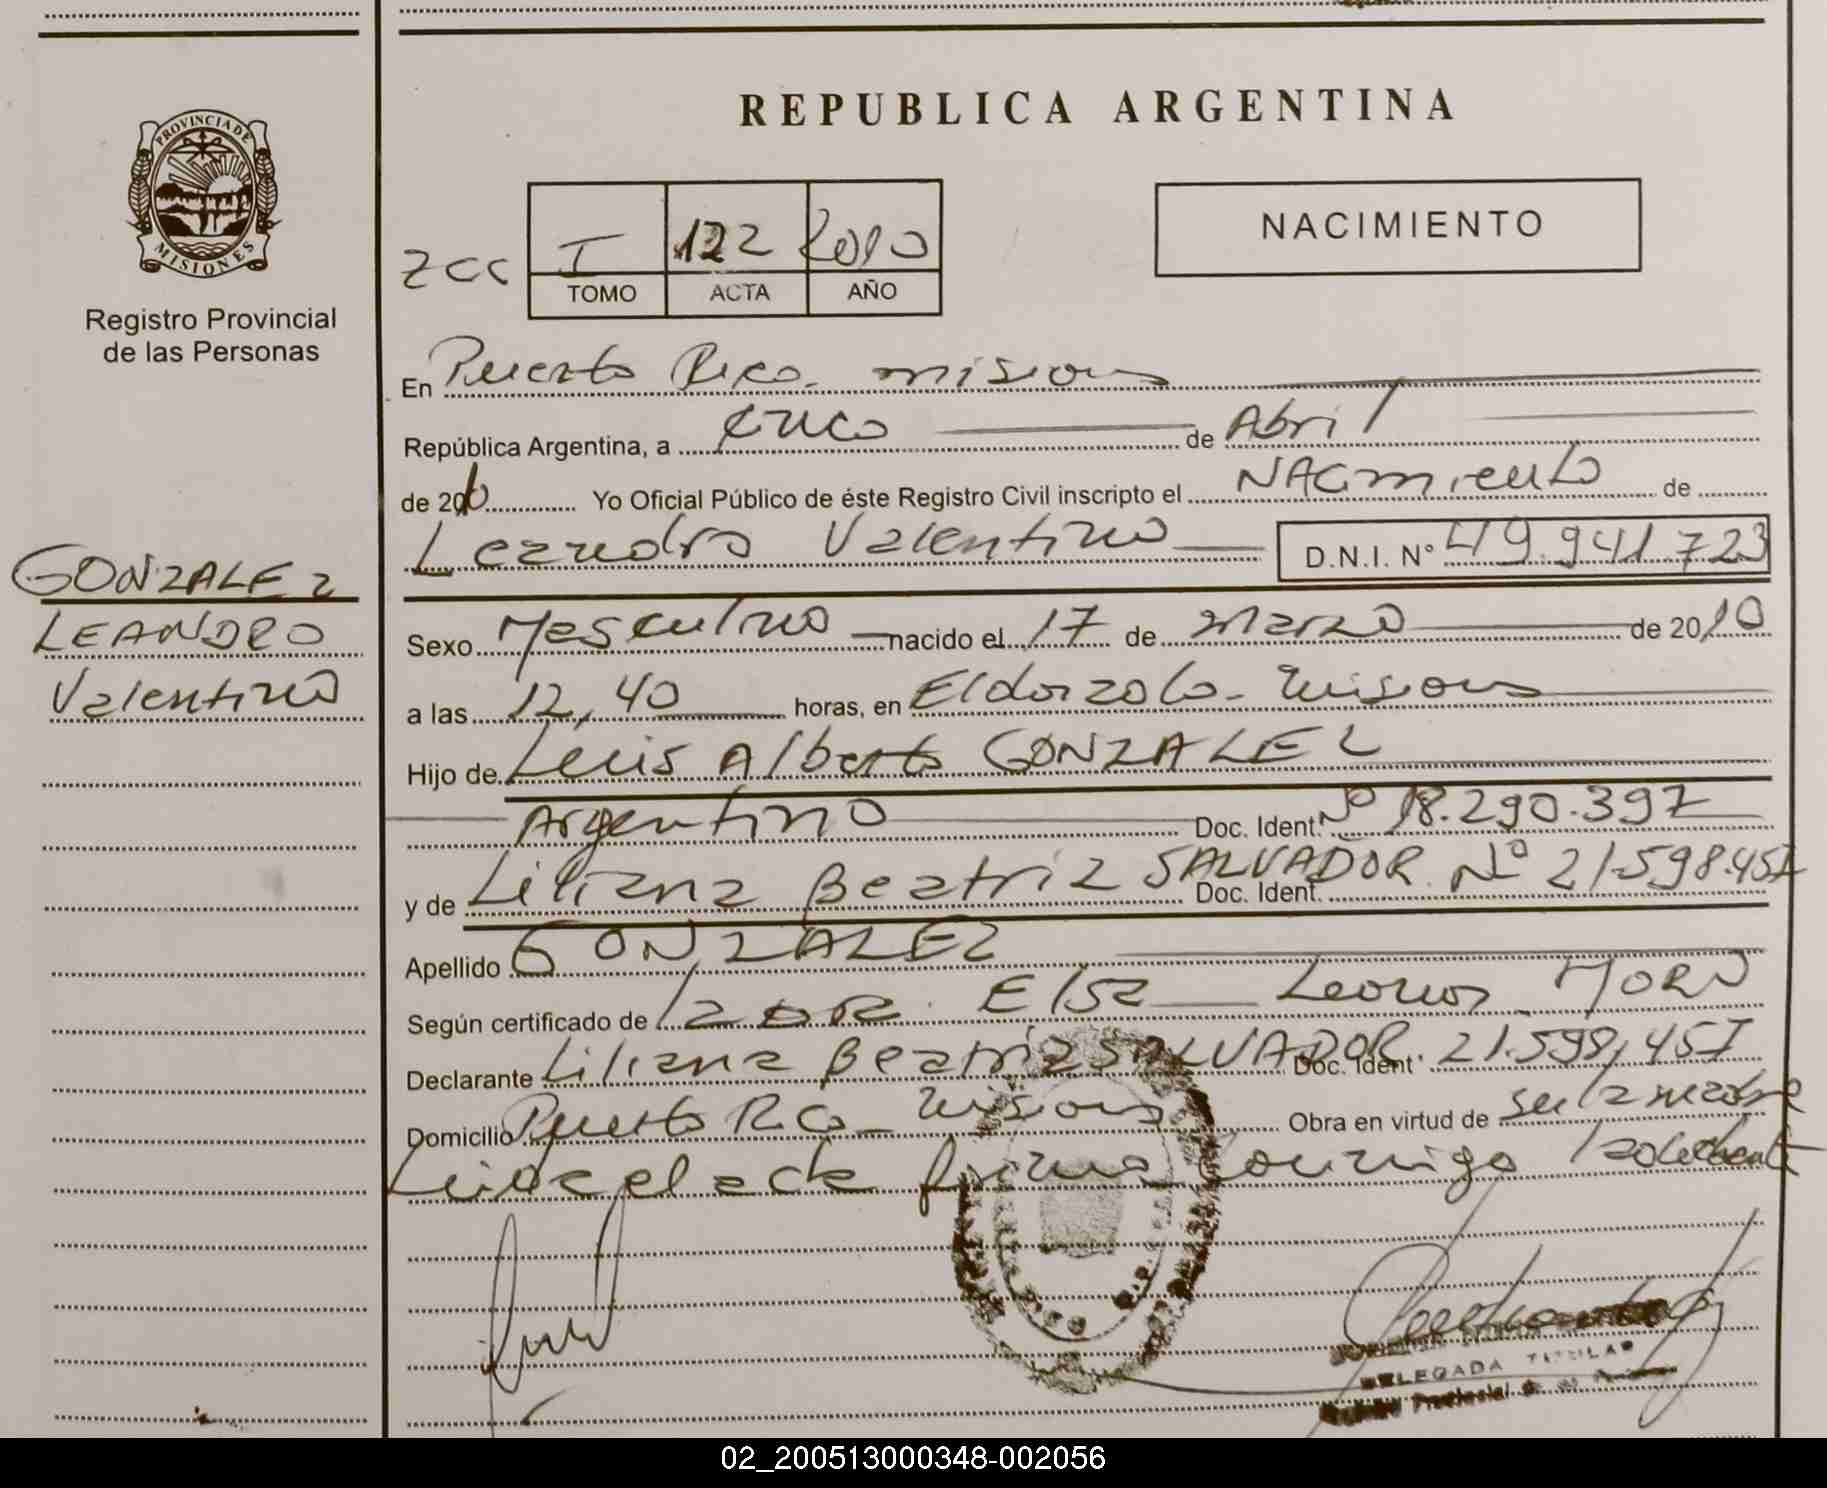 REPUBLICA ARGENTINA
PROVINCIA DE
MISIONES
Registro Provincial
de las Personas
NACIMIENTO
I 122 2010
TOMO ACTA AÑO
En Puerto Rico - misiones
República Argentina, a cinco de Abril
de 2010 Yo Oficial Público de éste Registro Civil inscripto el NACimiento de
Leandro Valentino D.N.I. N° 49.941.723
GONZALEZ
LEANDRO
Valentino
Sexo Masculino nacido el 17 de marzo de 2010
a las 12,40 horas, en Eldorado - misiones
Hijo de Luis Alberto GONZALEZ
Argentino Doc. Ident. N° 18.290.397
y de Liliana Beatriz SALVADOR Doc. Ident. N° 21.598.451
Apellido GONZALEZ
Según certificado de Elsa Leonor MORN
Declarante Liliana Beatriz SALVADOR Doc. Ident. 21.598.451
Domicilio Puerto Rico - misiones Obra en virtud de su
Leida el acta firma conmigo
DELEGADA TITULAR
Provincial
02_200513000348-002056